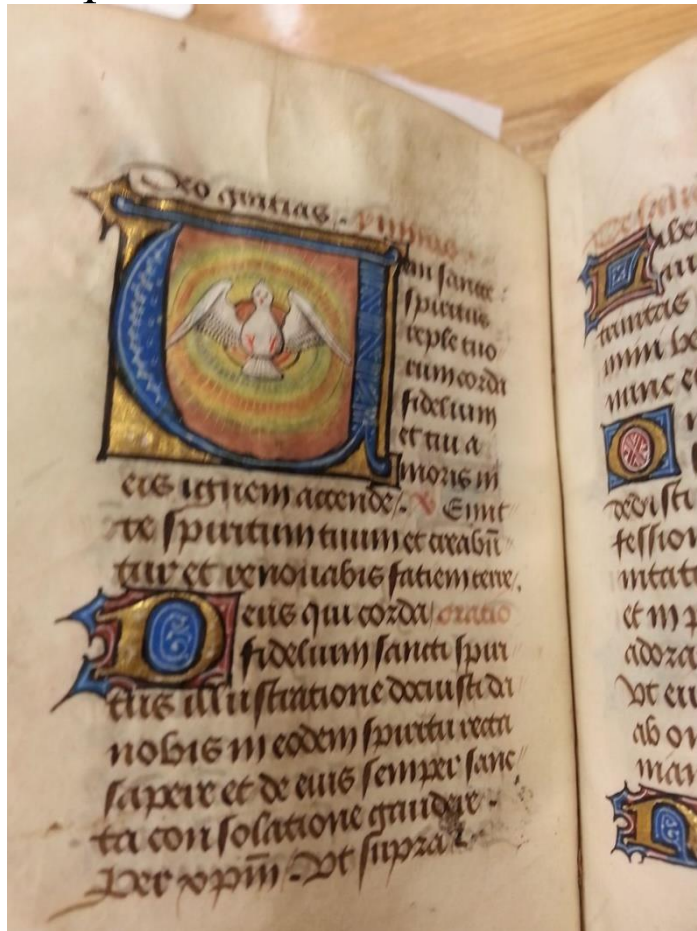 Deo gratias.
Ueni sancte
spiritus
reple tuo
rum corda
fidelium
et tui a
moris in
eis ignem accende. V Emit
te spiritum tuum et creabūtur
tur et renouabis fatiem terre.
Deus qui corda oratio
fidelium sancti spiri
tus illustratione docuisti da
nobis in eodem spiritu recta
sapere et de eius semper sanc
ta consolatione gaudere.
Per xpm̄. Vt supra
Libe
trinitas
nunc e
dedisti
fession
nitat
et in
adora
Vt eu
ab o